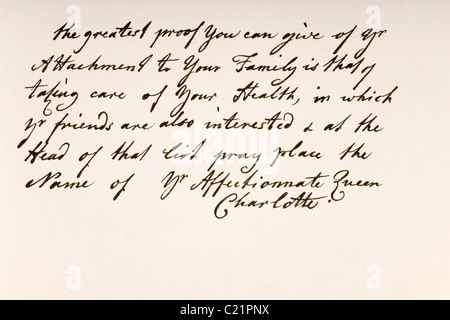 the greatest proof You can give of Yr
Attachment to Your Family is that of
taking care of Your Health, in which
yr friends are also interested & at the
Head of that list pray place the
Name of Yr Affectionnate Queen
Charlotte.
alamy
Image ID: C21PNX
www.alamy.com